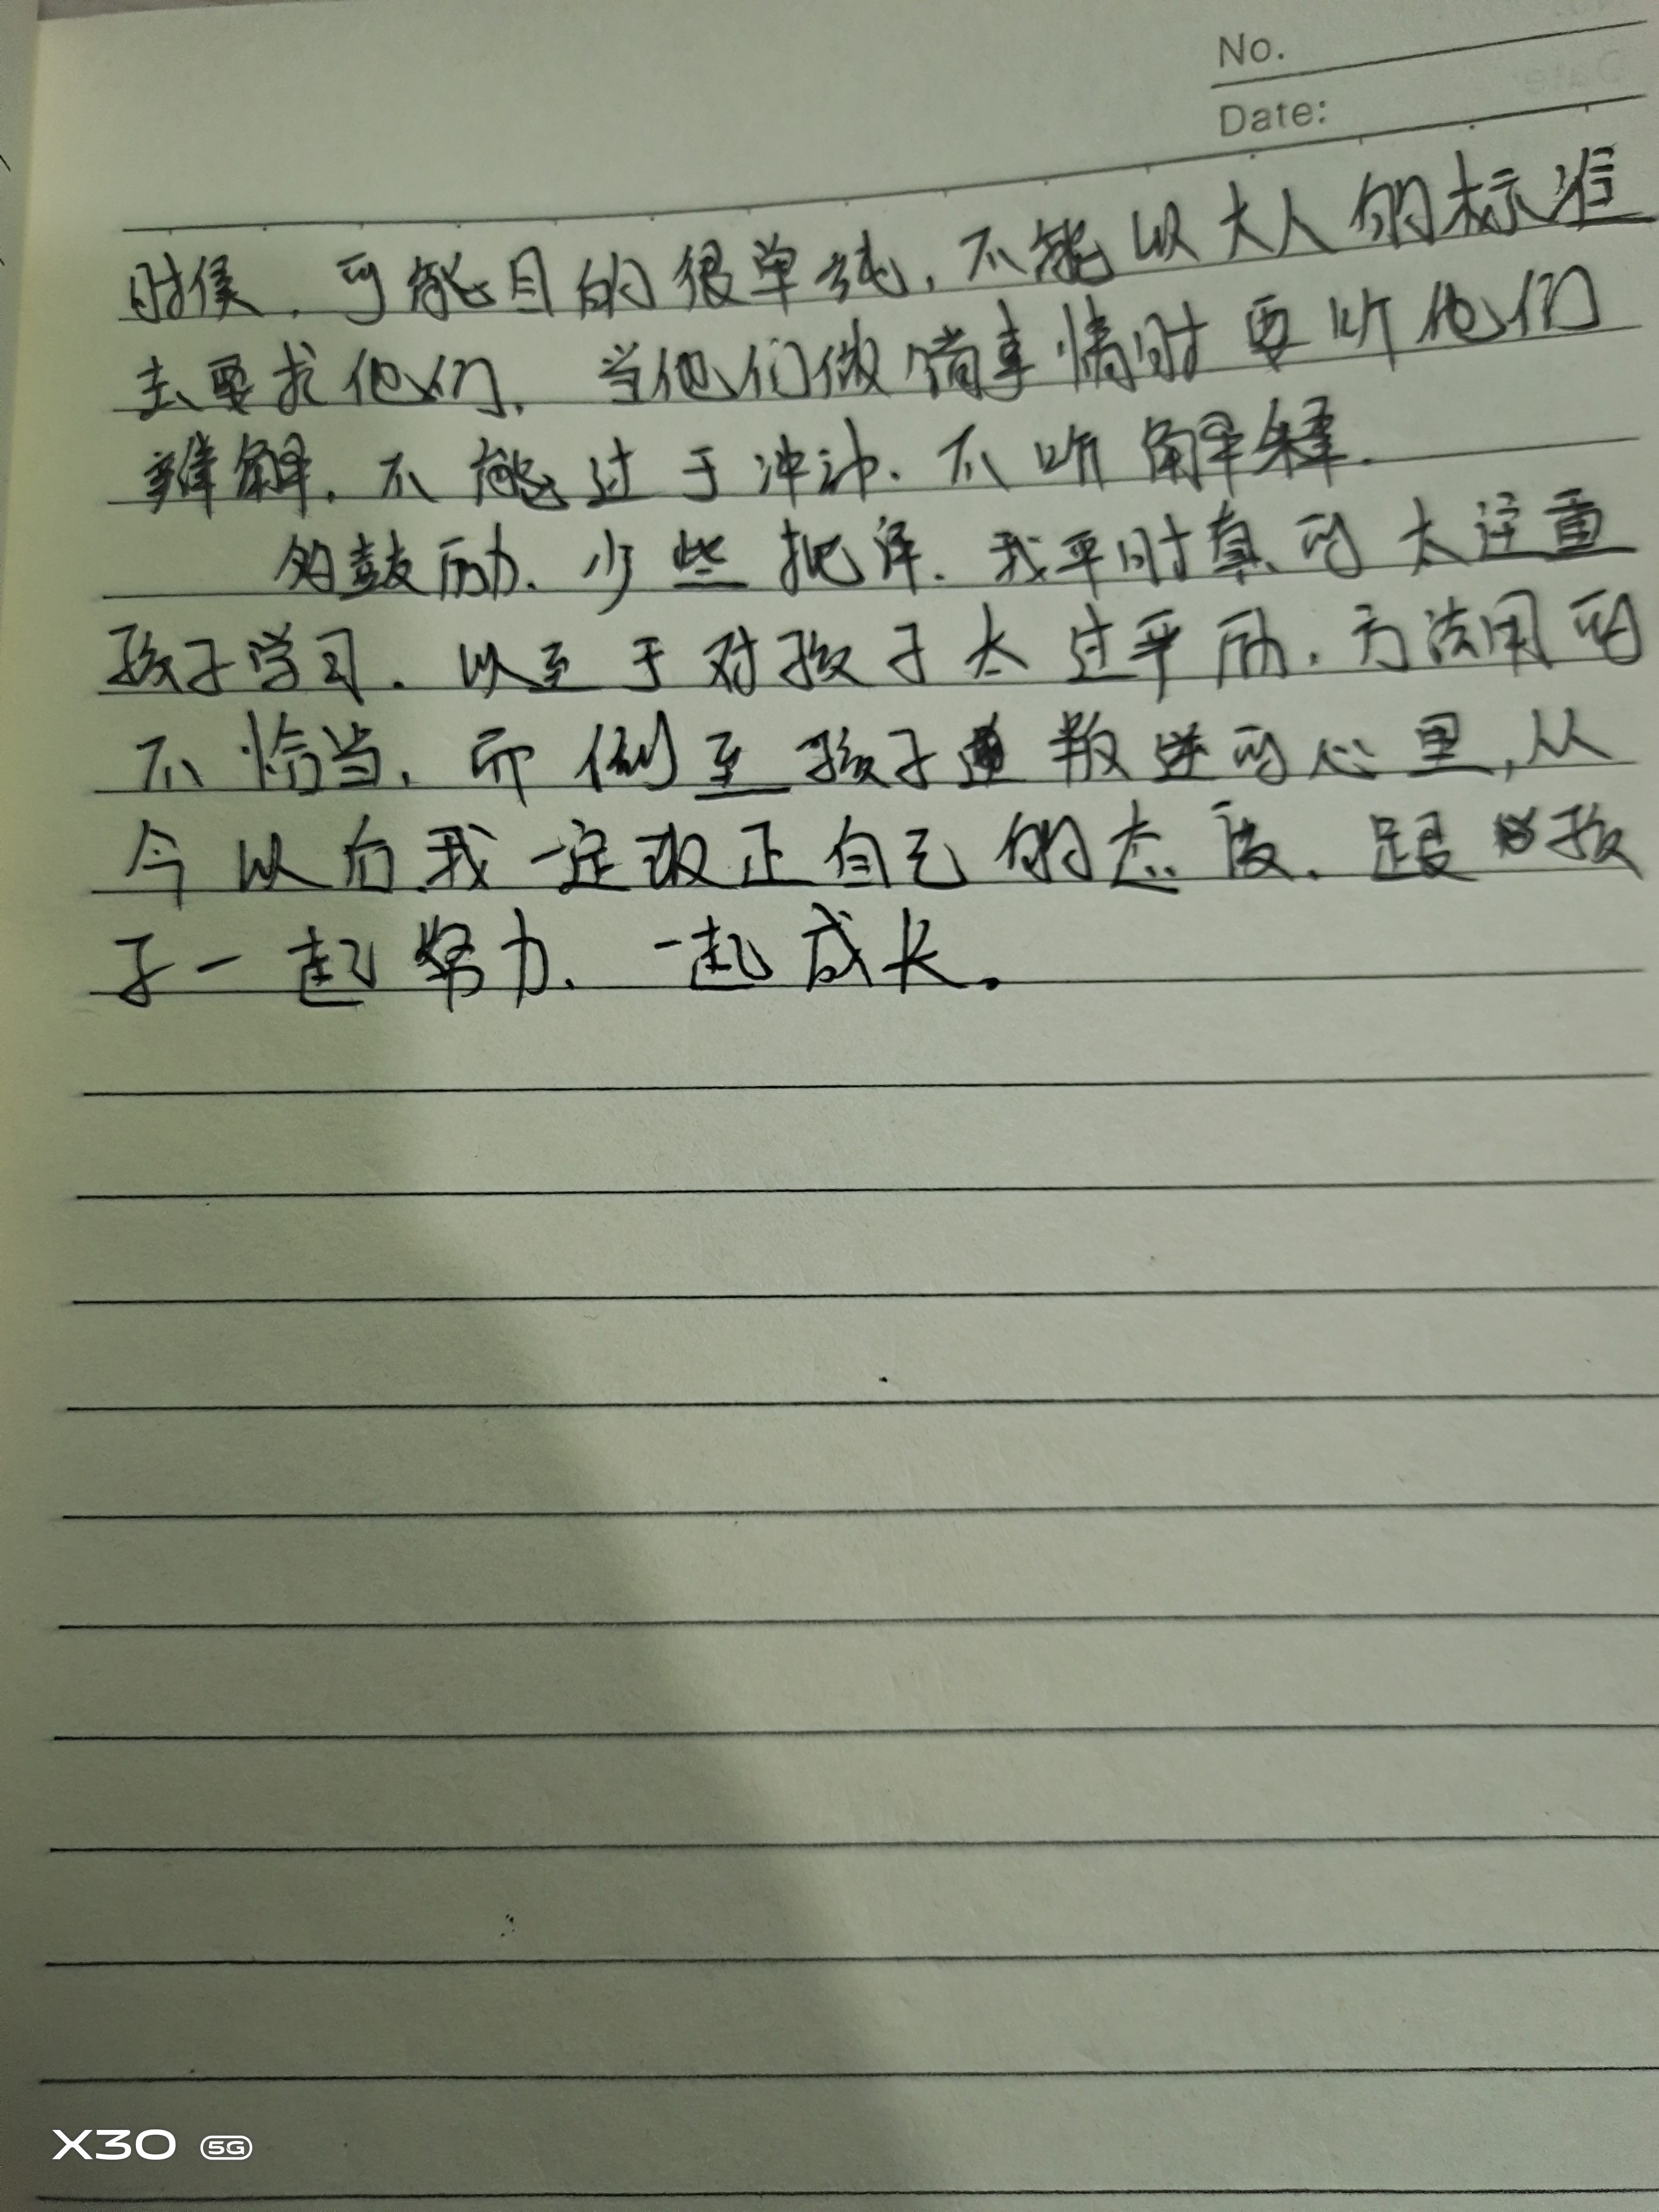 No.
Date:
时侯，可能目的很单纯，不能以大人的标准
去要求他们，当他们做错事情时要听他们
辩解，不能过于冲冲，不听解释.
的鼓励，少些批评，我平时真的太注重
孩子学习，以至于对孩子太过严厉，方法用的
不恰当，而倒至孩子叛逆的心里,从
今以后我一定改正自己的态度，跟孩
子一起努力，一起成长。
X30 5G